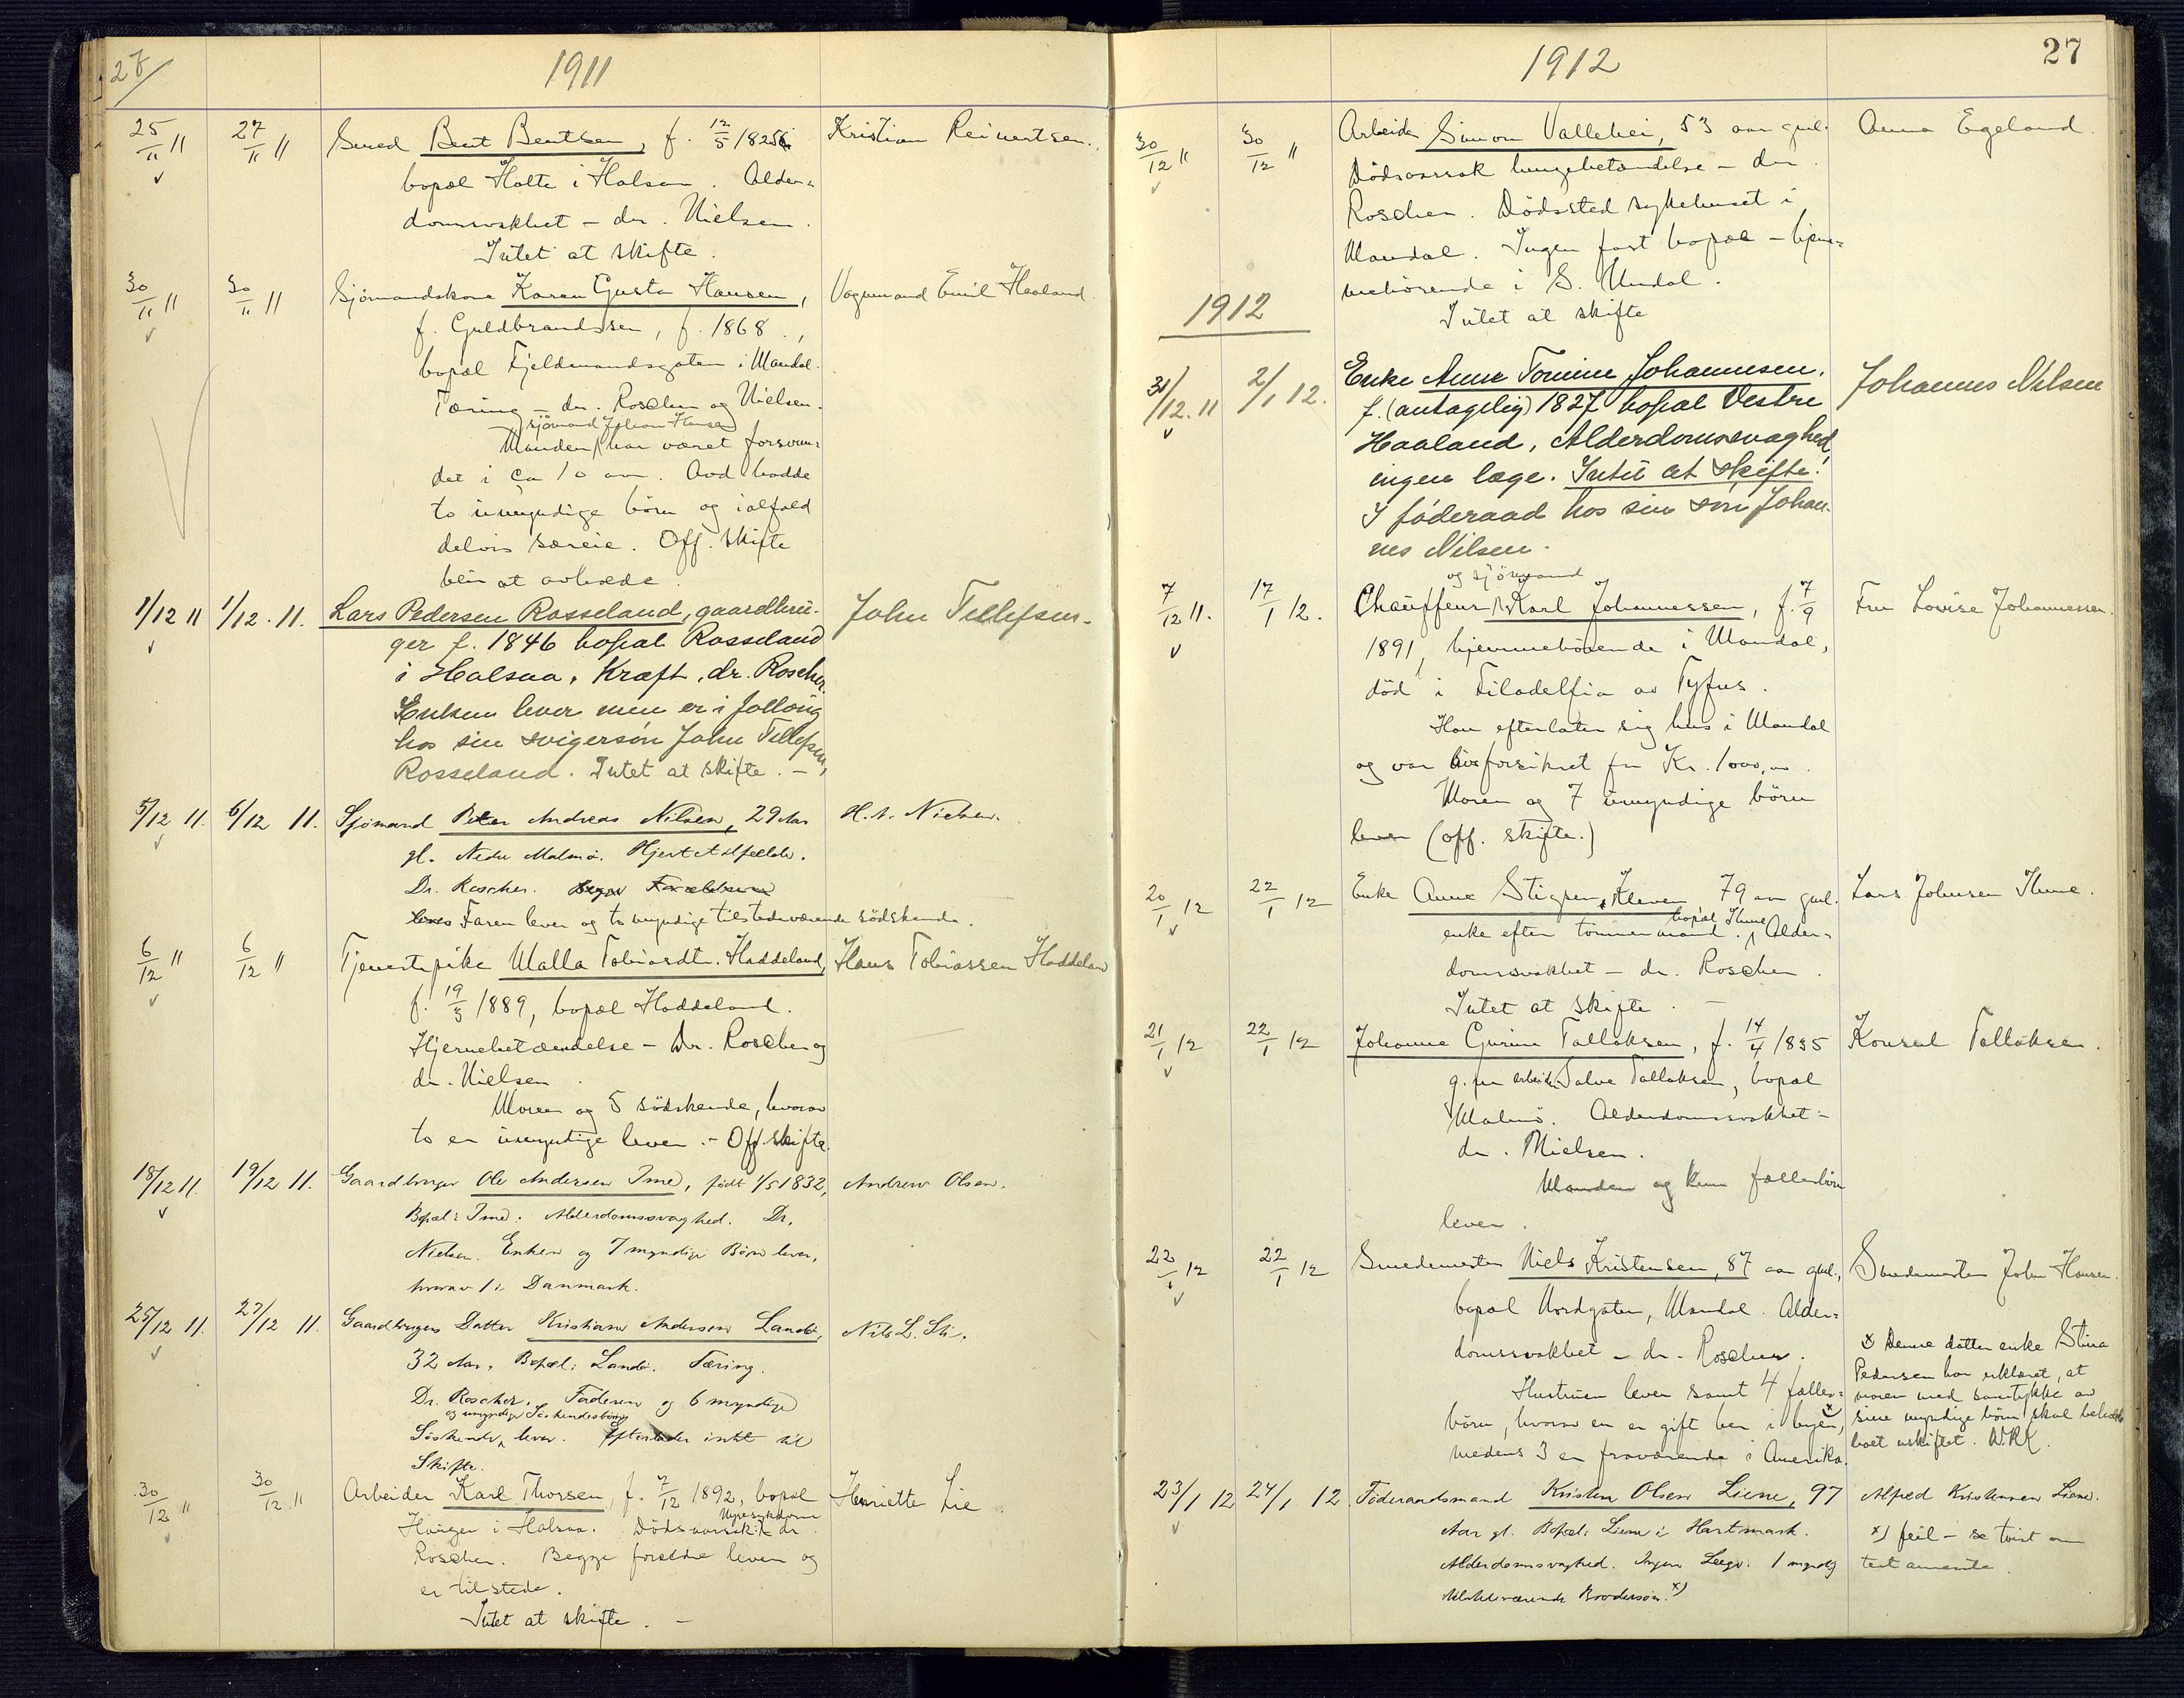 1911
25/11 11 27/11 11 Smed Bent Bentsen, f. 12/5 1825 Kristian Reinertsen.
bopæl Holte i Halsaa. Alder-
domssvakhet – dr. Nielsen.
Intet at skifte.
30/11 11 30/11 11 Sjømandskone Karen Gusta Hansen, Vognmand Emil Haaland.
f. Guldbrandssen, f. 1868.,
bopæl Fjeldmandsgaten i Mandal.
Tæring – dr. Roscher og Nielsen.
sjømand Johan Hansen
Manden har været forsvun-
det i ca 10 aar. Avd hadde
to umyndige børn og ialfald
delvis særeie. Off. skifte
blir at avholde.
1/12 11 1/12. 11. Lars Pedersen Rosseland, gaardbru- John Tellefsen.
ger f. 1846 bopæl Rosseland
i Halsaa. Kræft, dr. Roscher.
Enken lever men er i follaug
hos sin svigersøn John Tellefsen,
Rosseland. Intet at skifte. –
5/12 11. 6/12 11. Sjømand Peter Andreas Nilsen, 29 Aar H. A. Nielsen.
gl. Nedre Malmø. Hjerteonfælde.
Dr. Roscher. Begge Forældrene
leve Faren lever og to myndige tilstedeværende sødskende.
6/12 11 6/12 11 Tjenestepike Malla Tobiasdtr. Haddeland, Hans Tobiassen Haddeland
f. 19/3 1889, bopæl Haddeland.
Hjernebetændelse – Dr. Roscher og
dr. Nielsen.
Moren og 5 sødskende, hvorav
to er umyndige lever. – Off. skifte.
18/12 11. 19/12 11. Gaardbruger Ole Andersen Ime, født 1/5 1832, Andreas Olsen.
Bopæl: Ime. Alderdomssvaghed. Dr.
Nielsen. Enken og 7 myndige Børn lever,
hvorav 1 i Danmark.
25/12 11. 27/12 11. Gaardbrugers Datter Kristiane Andersen Landø, Nils L. Sti.
32 Aar. Bopæl: Landø. Tæring.
Dr. Roscher. Faderen og 6 myndige
og umyndige Søskendebørn
Søskende lever. Efterlader intet til
Skifte.
30/12 11 30/12 11 Arbeider Karl Thorsen, f. 7/12 1892, bopæl Henriette Lie
Nyresykdom
Hauger i Halsaa. Dødsaarsak: dr.
Roscher. Begge forældre lever og
er tilstede.
Intet at skifte. –
1912 27
30/12 11 30/12 11 Arbeider Simon Vallehei, 53 aar gml. Anna Egeland.
Dødsaarsak lungebetændelse – dr.
Roscher. Dødssted sykehuset i
Mandal. Ingen fast bopæl – hjem-
mehørende i S. Undal.
Intet at skifte
1912
31/12. 11 2/1 12. Enke Anne Tomine Johannesen. Johannes Nilsen
f. (antagelig) 1827 bopæl Vestre
Haaland, Alderdomssvaghed,
ingen læge. Intet at skifte!
I føderaad hos sin søn Johan-
nes Nilsen.
og sjømand
7/12 11. 17/1 12. Chauffeur Karl Johannessen, f. 7/9 Fru Lovise Johannessen.
1891, hjemmehørende i Mandal,
død i Filadelfia av Tyfus.
Han efterlater sig hus i Mandal
og var livsforsikret for Kr. 1000,00.
Moren og 7 umyndige børn
lever (off. skifte.)
20/1 12 22/1 12 Enke Anne Stigsen, Kleven 79 aar gml. Lars Johnsen Ihme.
bopæl Ihme
enke efter tømmermand. Alder-
domssvakhet – dr. Roscher.
Intet at skifte. –
21/1 12 22/1 12 Johanne Gurine Tallaksen, f. 14/4 1835 Konsul Tallaksen.
g. m arbeider Salve Tallaksen, bopæl
Malmø. Alderdomssvakhet –
dr. Nielsen.
Manden og kun fællesbørn
lever.
22/1 12 22/1 12 Smedemester Niels Kristensen, 87 aar gml., Smedemester John Hansen.
bopæl Nordgaten, Mandal. Alder-
domssvakhet – dr. Roscher.
Hustruen lever samt 4 fælles-
børn, hvorav en er gift her i byen, x
medens 3 er fraværende i Amerika.
x Denne datter enke Stina
Pedersen har erklæret, at
moren med samtykke av
sine myndige børn skal beholde
boet uskiftet. WRK.
23/1 12 24/1 12 Føderaadsmand Kristen Olsen Liene, 97 Alfred Kristensen Liene.
Aar gl. Bopæl: Liene i Hartmark.
Alderdomssvaghed. Ingen Læge. 1 myndig
tilstedeværende Brodersøn. x)
x) feil – se tvist om
testamente.